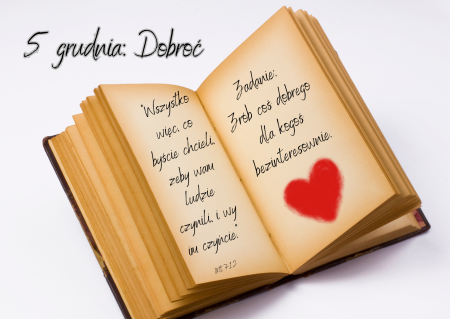 5 grudnia: Dobroć
"Wszystko
więc, co
byście chcieli,
żeby wam
ludzie
czynili, i wy
im czyńcie."
Mt 7,12
Zadanie:
Zrób coś dobrego
dla kogoś
bezinteresownie.